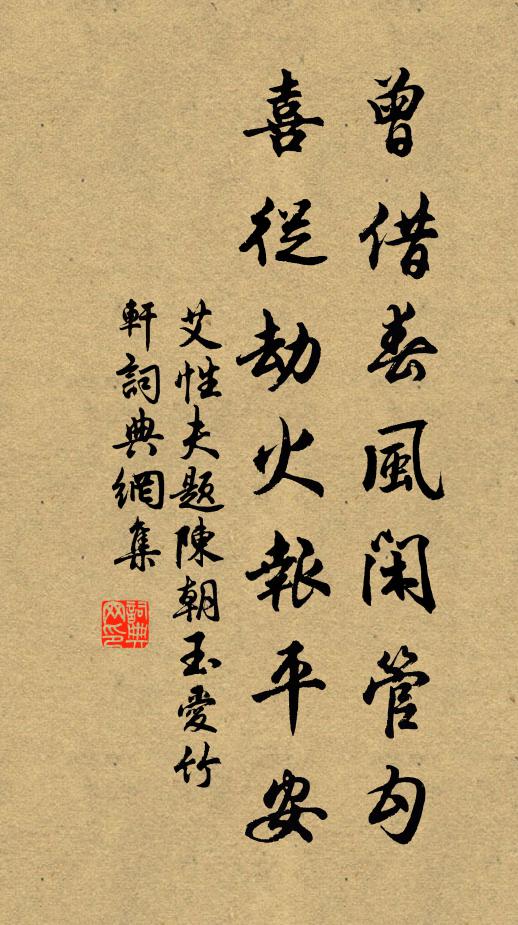 曾借春風閑管勾
喜從劫火報平安
艾性夫題陳朝玉愛竹
軒詞典網集
詞典
网印